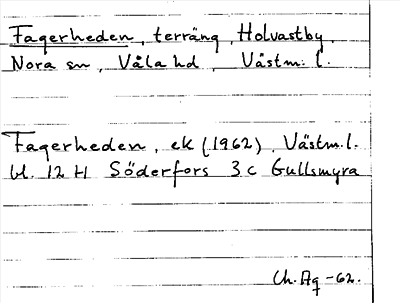 Fagerheden, terräng, Holvastby,
Nora sn, Våla hd, Västm. l.
Fagerheden, ek (1962), Västm.l.
bl. 12 H Söderfors 3 c Gullsmyra
Ch. Ag -62.